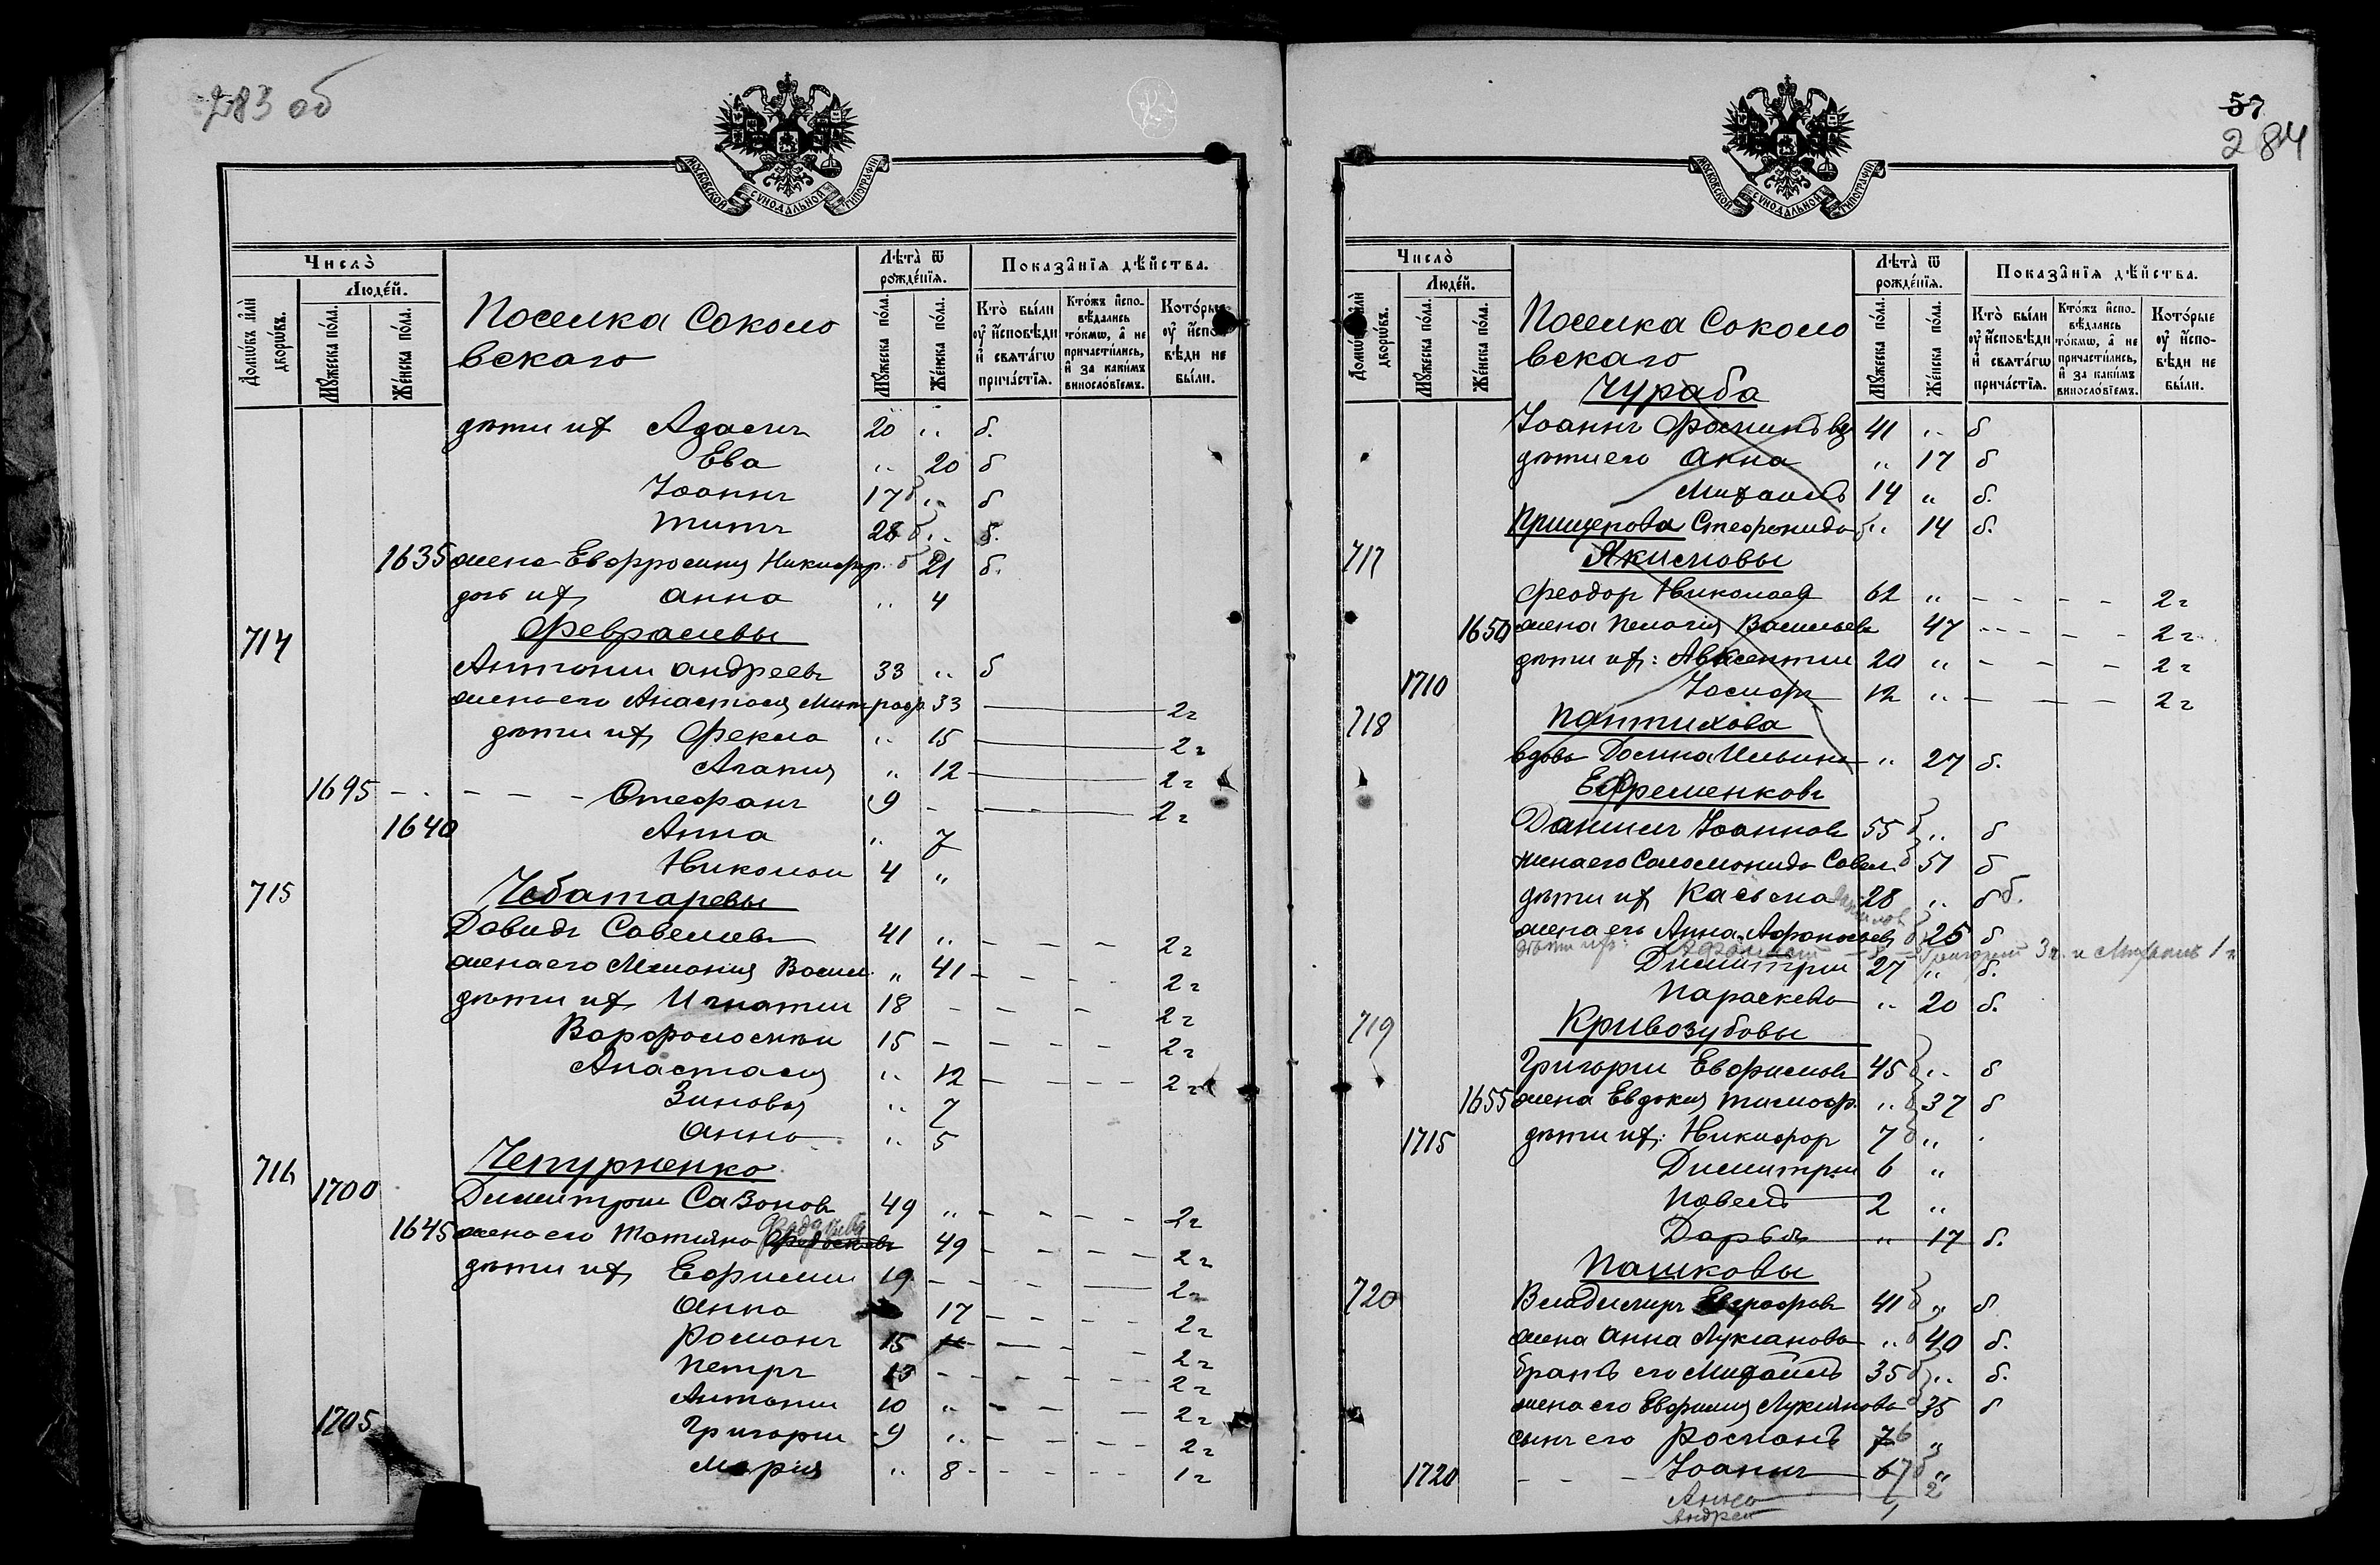 283 об
МОСКОВСКОЙ СѴНОДАЛЬНОЙ ТИПОГРАФІИ
Число̀
Люде́й.
Лѣта̀ ѿ рожде́нїя.
Показа̑нїя дѣ́йства.
Домѡ́въ и҆лѝ дворѡ́въ.
Мꙋ́жеска по́ла.
Же́нска по́ла.
Поселка Соколо
вскаго
Мꙋ́жеска по́ла.
Же́нска по́ла.
Кто̀ бы́ли ᲂу҆ и҆сповѣди и҆ свята́гѡ прича́стїя.
Кто́жъ и҆спо-вѣдались то́кмѡ, а҆ не причасти́лись, и҆ за каки́мъ винослові́емъ.
Кото́рые ᲂу҆ и҆спо-вѣди не бы́ли.
дѣти их Адамъ 20 " б.
Ева " 20 б
Іоаннъ 17 б " б
Титъ 28 б " б.
1635 жена Евфросинія Никифор. б 21 б.
дочь их Анна " 4
714 Февралевы
Антоній Андреевъ 33 " б
жена его Анастасія Митроф 33 2г
дѣти их Фекла " 15 2г
Агапия " 12 2г
1695 Стефанъ 9 2г
1640 Анна " 7
Николай 4 "
715 Чеботаревы
Давидъ Савельевъ 41 " 2г
жена его Меланія Васил. " 41 2г
дѣти их Игнатій 18 2г
Варфоломѣй 15 2г
Анастасія " 12 2г
Зиновья " 7
Анна " 5
716 Чепурненко
1700 Димитрій Сазоновъ 49 " 2г
1645 жена его Татьяна 49 2г
дѣти их Ефимій 19 2г
Анна 17 2г
Романъ 15 2г
Петръ 13 2г
Антоній 10 " 2г
1705 Григорій 9 " 2г
Марія " 8 1г
57
284
МОСКОВСКОЙ СѴНОДАЛЬНОЙ ТИПОГРАФІИ
Число̀
Люде́й.
Лѣта̀ ѿ рожде́нїя.
Показа̑нїя дѣ́йства.
Домѡ́въ и҆лѝ дворѡ́въ.
Мꙋ́жеска по́ла.
Же́нска по́ла.
Поселка Соколо
вскаго
Мꙋ́жеска по́ла.
Же́нска по́ла.
Кто̀ бы́ли ᲂу҆ и҆сповѣди и҆ свята́гѡ прича́стїя.
Кто́жъ и҆спо-вѣдались то́кмѡ, а҆ не причасти́лись, и҆ за каки́мъ винослові́емъ.
Кото́рые ᲂу҆ и҆спо-вѣди не бы́ли.
Чураба
Іоаннъ 41 " б
дѣти его Анна " 17 б
Михаилъ 14 " б.
Прищепова Стефанида " 14 б.
717 Якимовы
Феодор Николаев 62 " 2г
1650 жена Пелагія Васильев 47 2г
дѣти их: Авксентій 20 " 2г
1710 Іосифъ 12 " 2г
718 Пантихова
вдова Домна Ильина " 27 б.
Ефременковъ
Даниилъ Іоанновъ 55 б " б
жена его Соломонида Савел. б 51 б
дѣти их Касьянъ 28 " б б.
жена его Анна Афонасьев б 25 б
дѣти ихъ: Григорій 3 г. и Михаилъ 1 г
Димитрій 27 " б.
Параскева " 20 б.
719 Кривозубовы
Григорій Ефимовъ 45 б " б
1655 жена Евдокія Тимоф. " б 37 б
1715 дѣти их: Никифор 7 б "
Димитрій 6 "
Павелъ 2 "
Дарья " 17 б.
Пашковы
720 Владимиръ 41 б " б
жена Анна Лукіанова " б 40 б.
братъ его Михаилъ 35 б " б.
жена его Евфимія Лукьянова б 35 б
сынъ его Романъ 7 б "
1720 Іоаннъ 6 7 б "
Анна 2
Андрей 1